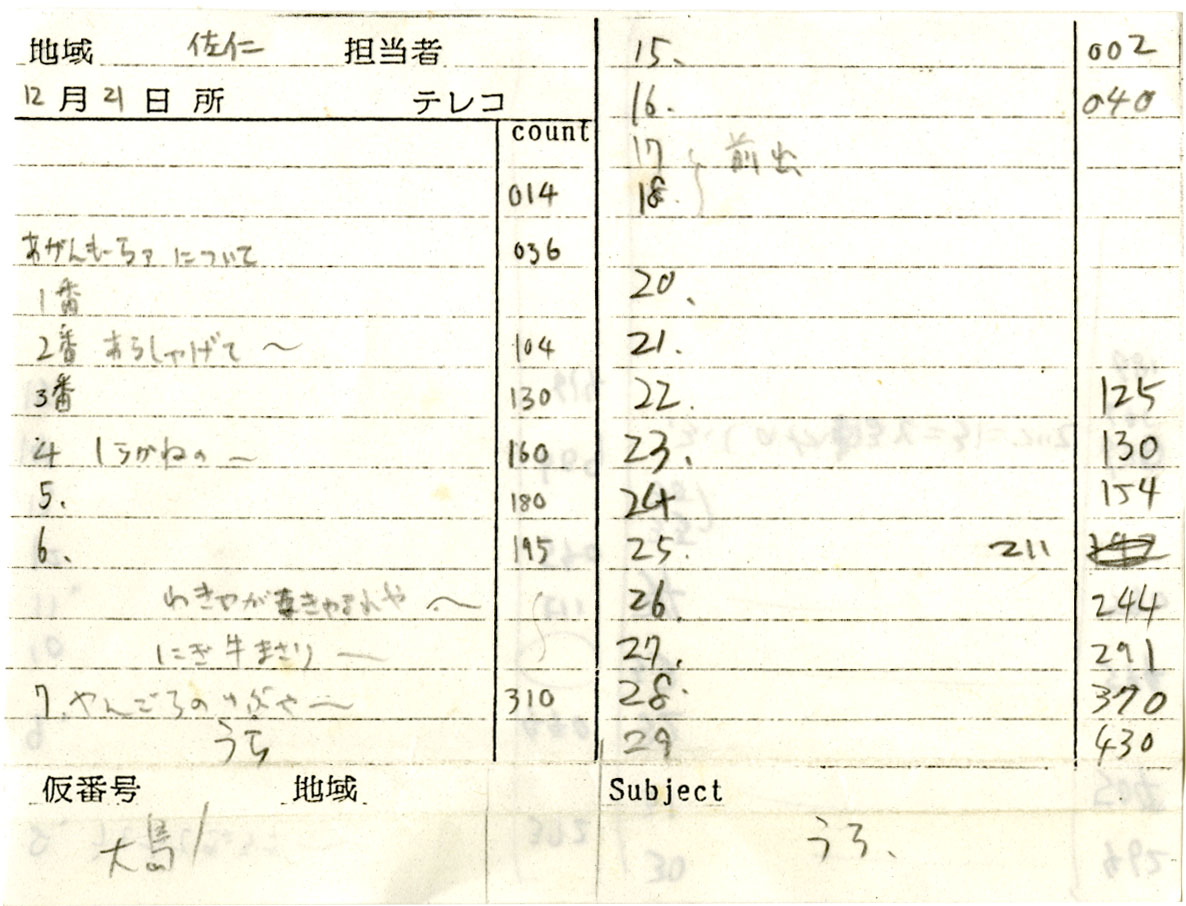 地域 佐仁 担当者
12月21日 所 テレコ
count
014
あがんもーらァについて 036
1番
2番 あらしゃげて〜 104
3番 130
4 しろがねの〜 160
5. 180
6. 195
わきゃが 〜
にぎ牛まさり〜
7. やんごろの 〜 310
うら
仮番号 地域
大島/
15. 002
16. 040
17 前出
18.
20.
21.
22. 125
23. 130
24 154
25. 211
26. 244
27. 291
28. 370
29 430
Subject
うろ、